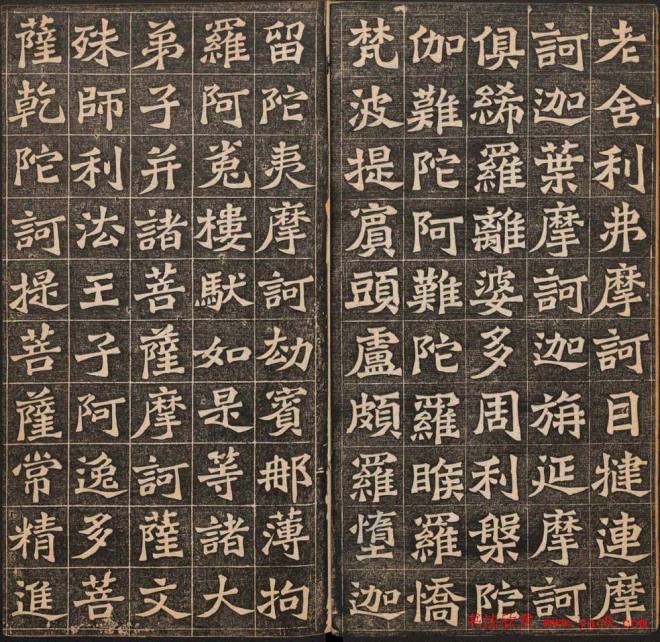 老舍利弗摩訶目揵連摩
訶迦葉摩訶迦旃延摩訶
俱絺羅離婆多周利槃陀
伽難陀阿難陀羅睺羅憍
梵波提賓頭盧頗羅墮迦
留陀夷摩訶劫賓那薄拘
羅阿㝹樓馱如是等諸大
弟子并諸菩薩摩訶薩文
殊師利法王子阿逸多菩
薩乾陀訶提菩薩常精進
书法欣赏 www.yac8.com